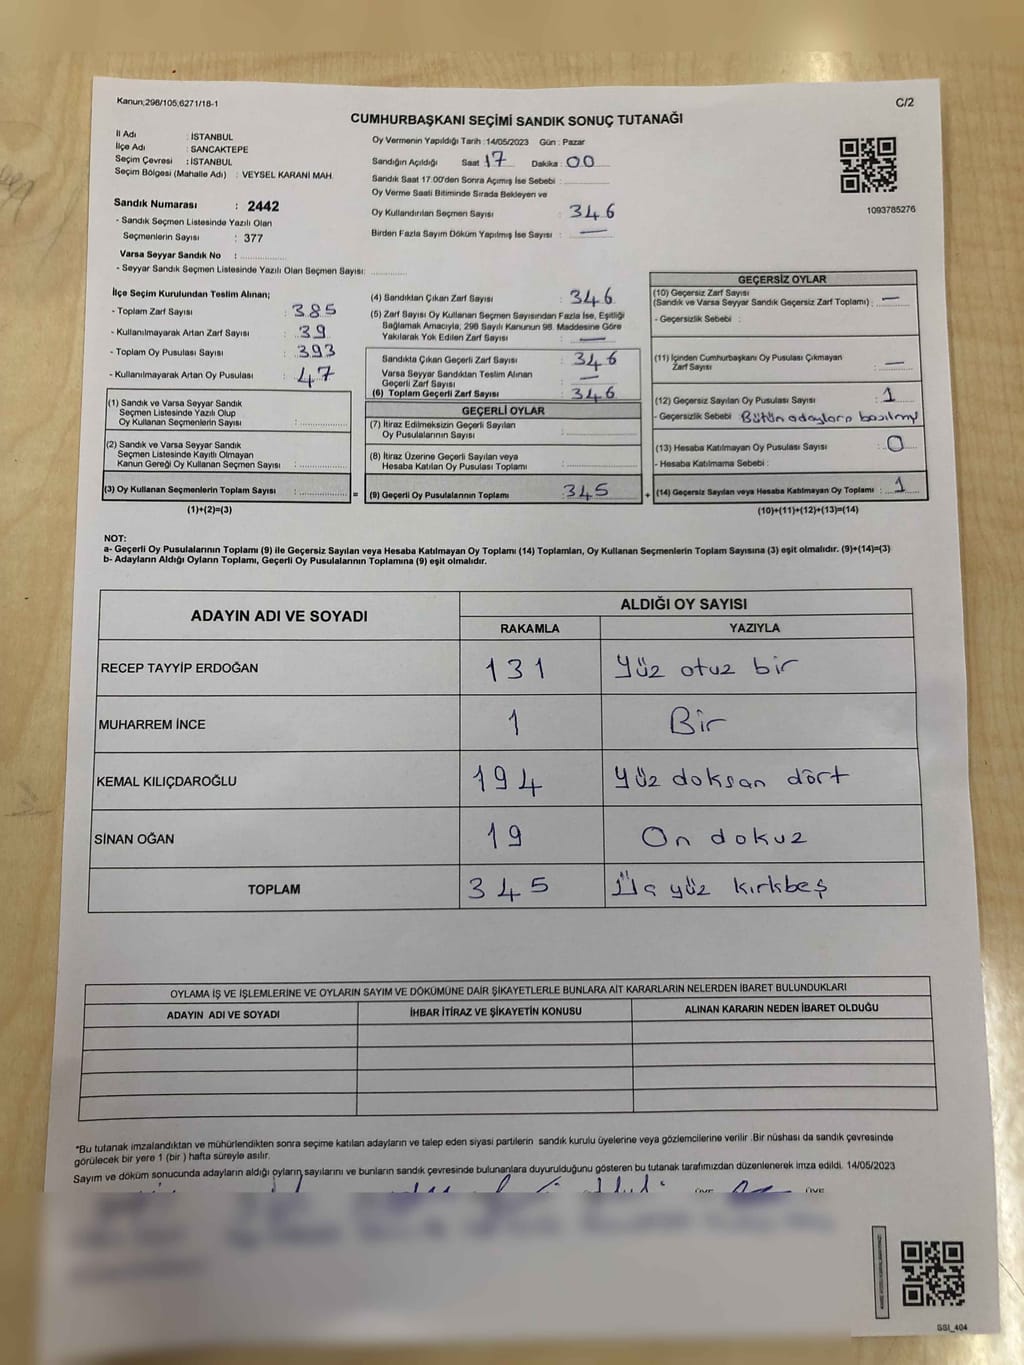 Kanun;298/105;6271/18-1
C/2
CUMHURBAŞKANI SEÇİMİ SANDIK SONUÇ TUTANAĞI
İl Adı : İSTANBUL
İlçe Adı : SANCAKTEPE
Seçim Çevresi : İSTANBUL
Seçim Bölgesi (Mahalle Adı) : VEYSEL KARANİ MAH.
Sandık Numarası : 2442
- Sandık Seçmen Listesinde Yazılı Olan
Seçmenlerin Sayısı : 377
Varsa Seyyar Sandık No : ............
- Seyyar Sandık Seçmen Listesinde Yazılı Olan Seçmen Sayısı: ............
Oy Vermenin Yapıldığı Tarih : 14/05/2023 Gün : Pazar
Sandığın Açıldığı Saat 17 Dakika : 00
Sandık Saat 17.00'den Sonra Açımış İse Sebebi : ............
Oy Verme Saati Bitiminde Sırada Bekleyen ve
Oy Kullandırılan Seçmen Sayısı : 346
Birden Fazla Sayım Döküm Yapılmış İse Sayısı : —
1093785276
İlçe Seçim Kurulundan Teslim Alınan;
- Toplam Zarf Sayısı : 385
- Kullanılmayarak Artan Zarf Sayısı : 39
- Toplam Oy Pusulası Sayısı : 393
- Kullanılmayarak Artan Oy Pusulası : 47
(1) Sandık ve Varsa Seyyar Sandık
Seçmen Listesinde Yazılı Olup
Oy Kullanan Seçmenlerin Sayısı : ............
(2) Sandık ve Varsa Seyyar Sandık
Seçmen Listesinde Kayıtlı Olmayan
Kanun Gereği Oy Kullanan Seçmen Sayısı : ............
(3) Oy Kullanan Seçmenlerin Toplam Sayısı : ............ =
(1)+(2)=(3)
(4) Sandıktan Çıkan Zarf Sayısı : 346
(5) Zarf Sayısı Oy Kullanan Seçmen Sayısından Fazla İse, Eşitliği
Sağlamak Amacıyla, 298 Sayılı Kanunun 98. Maddesine Göre
Yakılarak Yok Edilen Zarf Sayısı : —
Sandıkta Çıkan Geçerli Zarf Sayısı : 346
Varsa Seyyar Sandıktan Teslim Alınan
Geçerli Zarf Sayısı : —
(6) Toplam Geçerli Zarf Sayısı : 346
GEÇERLİ OYLAR
(7) İtiraz Edilmeksizin Geçerli Sayılan
Oy Pusulalarının Sayısı : ............
(8) İtiraz Üzerine Geçerli Sayılan veya
Hesaba Katılan Oy Pusulası Toplamı : ............
(9) Geçerli Oy Pusulalarının Toplamı : 345 +
GEÇERSİZ OYLAR
(10) Geçersiz Zarf Sayısı
(Sandık ve Varsa Seyyar Sandık Geçersiz Zarf Toplamı) : —
- Geçersizlik Sebebi :
(11) İçinden Cumhurbaşkanı Oy Pusulası Çıkmayan
Zarf Sayısı : —
(12) Geçersiz Sayılan Oy Pusulası Sayısı : 1
- Geçersizlik Sebebi Bütün adaylara basılmış
(13) Hesaba Katılmayan Oy Pusulası Sayısı : 0
- Hesaba Katılmama Sebebi :
(14) Geçersiz Sayılan veya Hesaba Katılmayan Oy Toplamı : 1
(10)+(11)+(12)+(13)=(14)
NOT:
a- Geçerli Oy Pusulalarının Toplamı (9) ile Geçersiz Sayılan veya Hesaba Katılmayan Oy Toplamı (14) Toplamları, Oy Kullanan Seçmenlerin Toplam Sayısına (3) eşit olmalıdır. (9)+(14)=(3)
b- Adayların Aldığı Oyların Toplamı, Geçerli Oy Pusulalarının Toplamına (9) eşit olmalıdır.
ADAYIN ADI VE SOYADI ALDIĞI OY SAYISI
RAKAMLA YAZIYLA
RECEP TAYYİP ERDOĞAN 131 Yüz otuz bir
MUHARREM İNCE 1 Bir
KEMAL KILIÇDAROĞLU 194 Yüz doksan dört
SİNAN OĞAN 19 On dokuz
TOPLAM 345 Üç yüz kırkbeş
OYLAMA İŞ VE İŞLEMLERİNE VE OYLARIN SAYIM VE DÖKÜMÜNE DAİR ŞİKAYETLERLE BUNLARA AİT KARARLARIN NELERDEN İBARET BULUNDUKLARI
ADAYIN ADI VE SOYADI İHBAR İTİRAZ VE ŞİKAYETİN KONUSU ALINAN KARARIN NEDEN İBARET OLDUĞU
*Bu tutanak imzalandıktan ve mühürlendikten sonra seçime katılan adayların ve talep eden siyasi partilerin sandık kurulu üyelerine veya gözlemcilerine verilir .Bir nüshası da sandık çevresinde
görülecek bir yere 1 (bir ) hafta süreyle asılır.
Sayım ve döküm sonucunda adayların aldığı oyların sayılarını ve bunların sandık çevresinde bulunanlara duyurulduğunu gösteren bu tutanak tarafımızdan düzenlenerek imza edildi. 14/05/2023
SSI_404